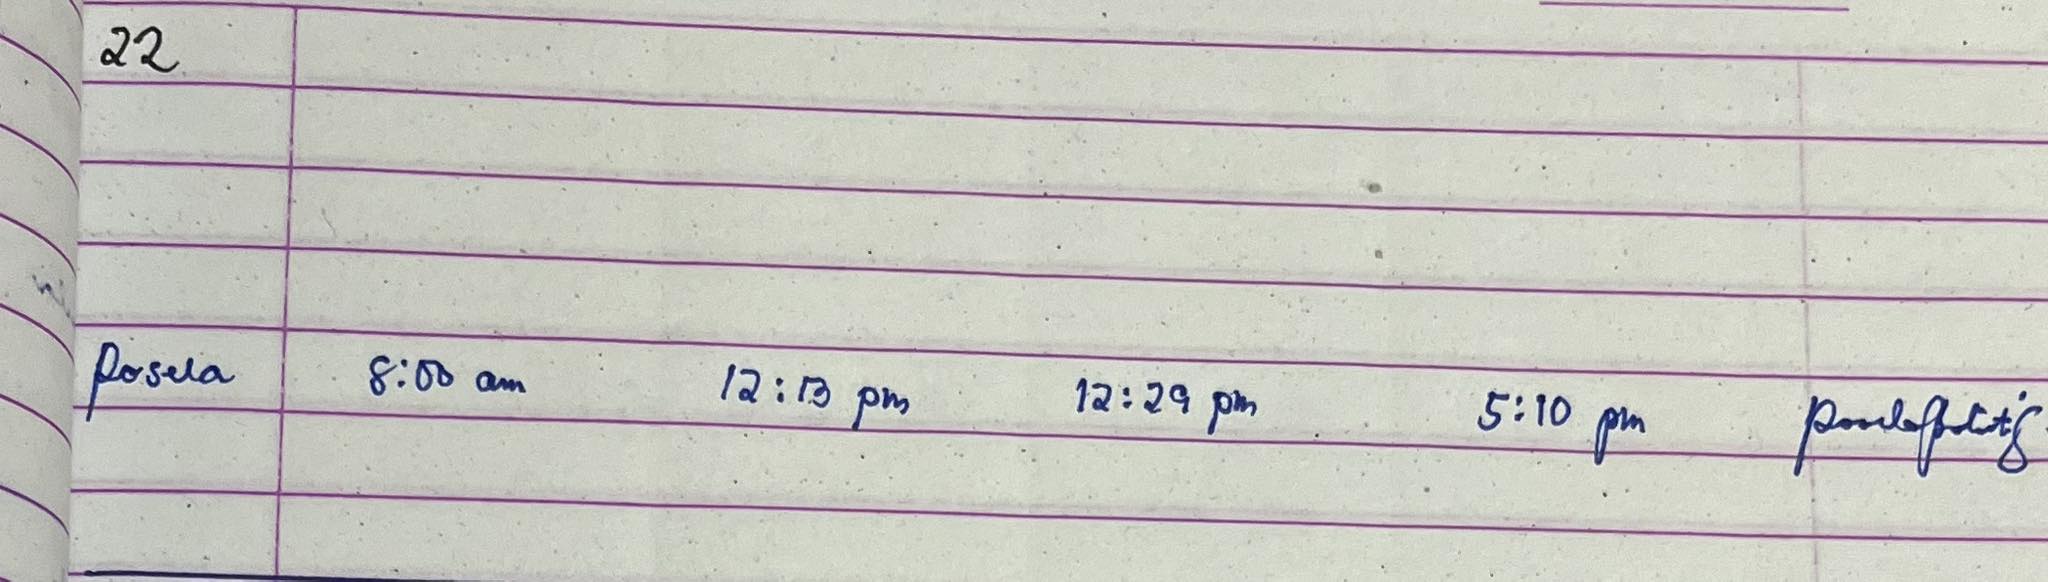 22
Posela 8:00 am 12:13 pm 12:29 pm 5:10 pm